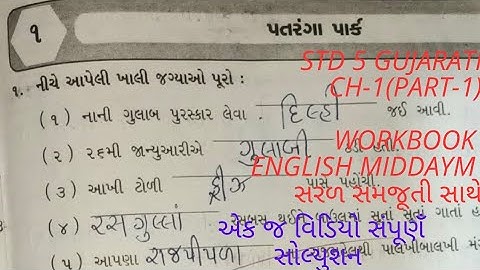 ૧
પતરંગા પાર્ક
STD 5 GUJARATI
CH-1(PART-1)
૧. નીચે આપેલી ખાલી જગ્યાઓ પૂરો :
(૧) નાની ગુલાબ પુરસ્કાર લેવા દિલ્હી જઈ આવી.
(૨) ૨૬મી જાન્યુઆરીએ ગુલાબી હતી.
WORKBOOK
ENGLISH MIDDAYM
(૩) આખી ટોળી ફ્રીઝ પાસે પહોંચી.
સરળ સમજૂતી સાથે
(૪) રસગુલ્લાં ગાતાં
એક જ વિડિયો સંપૂર્ણ
સોલ્યુશન
(૫) આપણા રાજપીપળા